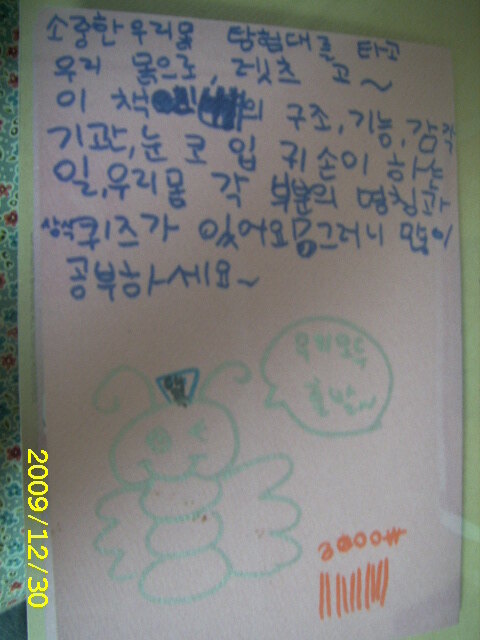 소중한 우리몸 탐험대를 타고
우리 몸으로, 렛츠 고~
이 책 의 구조, 기능, 감각
기관, 눈 코 입 귀 손이 하는
일, 우리몸 각 부분의 명칭과
상식퀴즈가 있어요 그러니 많이
공부하세요~
우리모두
출발~
3000₩
2009/12/30